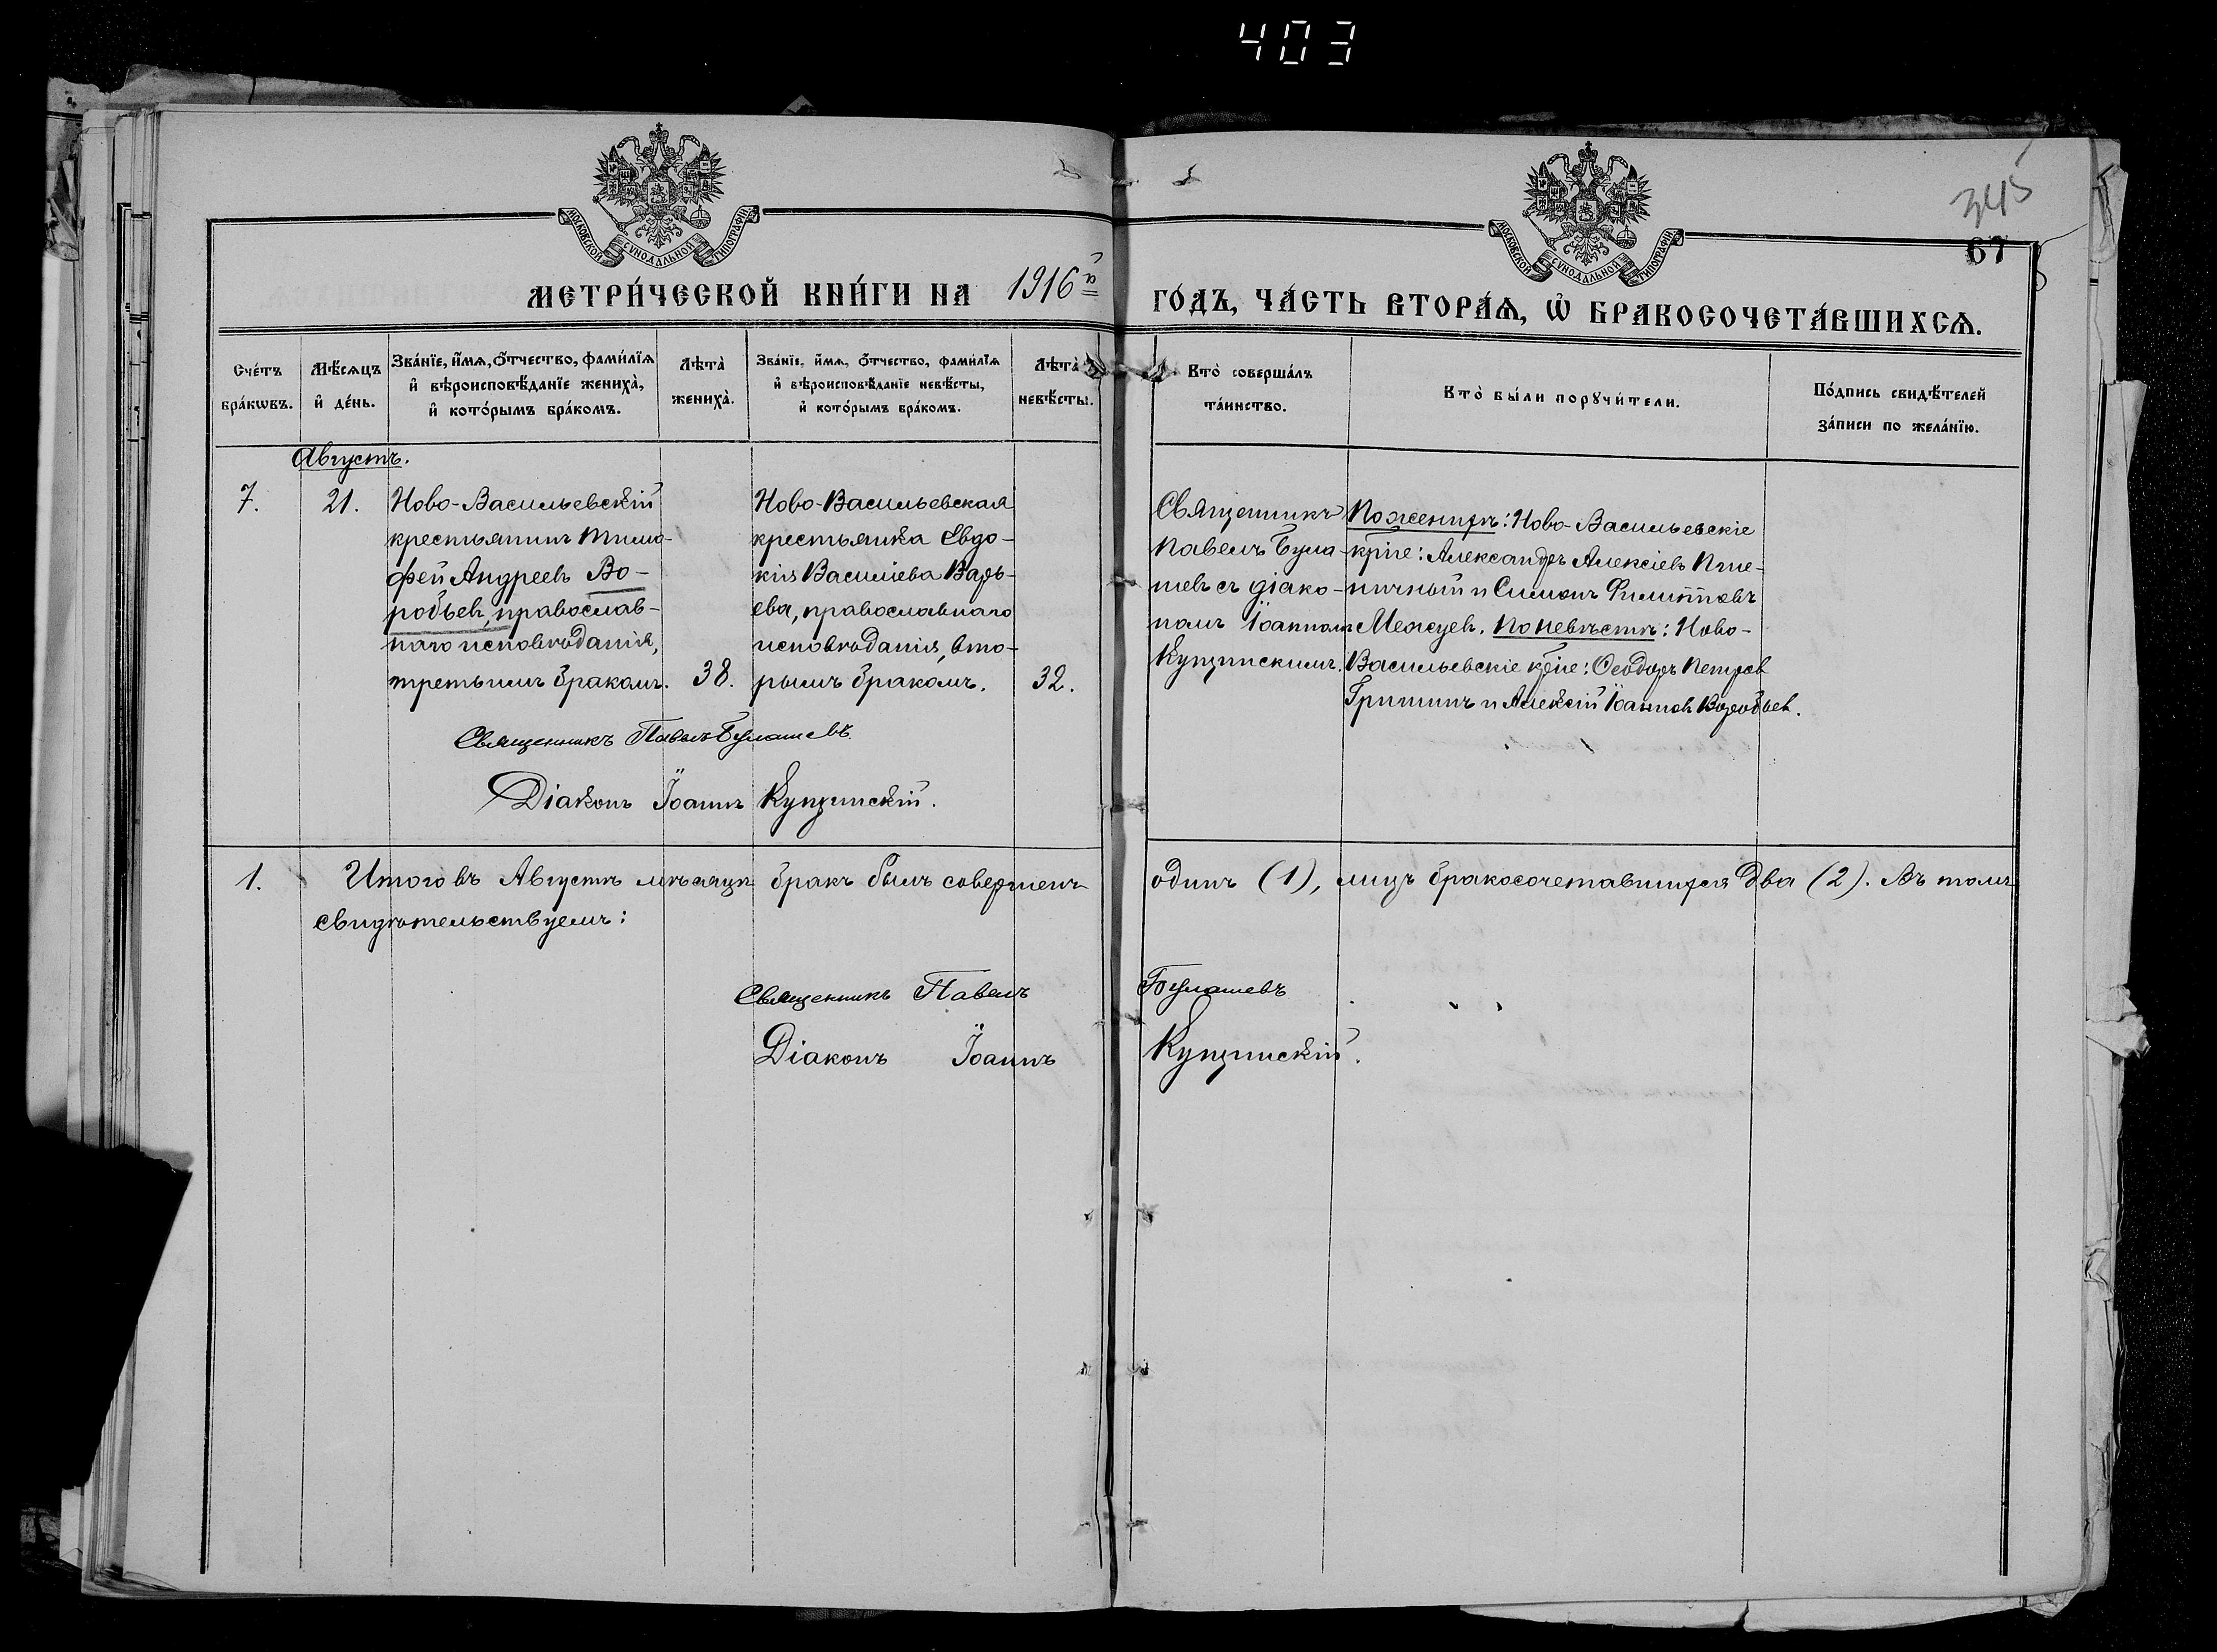 403
345
67
МОСКОВСКОЙ СУНОДАЛЬНОЙ ТИПОГРАФІИ
МОСКОВСКОЙ СУНОДАЛЬНОЙ ТИПОГРАФІИ
МЕТРИ́ЧЕСКОЙ КНИ́ГИ НА 1916й ГО́ДЪ, ЧА́СТЬ ВТОРА́Ѧ, Ѽ БРАКОСОЧЕТА́ВШИХСѦ.
Сче́тъ бра́кѡвъ.
Мѣ́сѧцъ и҆ де́нь.
Зва́нїе, и҆́мѧ, ѻ҆́тчество, фами́лїѧ
и҆ вѣроисповѣ́данїе жениха̀,
и҆ кото́рымъ бра́комъ.
Лѣта̀ жениха̀.
Зва́нїе, и҆́мѧ, ѻ҆́тчество, фами́лїѧ
и҆ вѣроисповѣ́данїе невѣ́сты,
и҆ кото́рымъ бра́комъ.
Лѣта̀ невѣ́сты.
Кто̀ соверша́лъ
та́инство.
Кто̀ бы́ли порꙋчи́тели.
По́дпись свидѣ́телей
за́писи по жела́нїю.
Августъ.
7.
21.
Ново-Васильевскій
крестьянинъ Тимо-
фей Андреевъ Во-
робьев, православ-
наго исповѣданія,
третьимъ бракомъ.
38.
Ново-Васильевская
крестьянка Евдо-
кія Василіева Варь-
ева, православнаго
исповѣданія, вто-
рымъ бракомъ.
32.
Священникъ
Павелъ Була-
шевъ съ діако-
номъ Іоанномъ
Купцинскимъ.
По женихѣ: Ново-Васильевскіе
кр-не: Александръ Алексіевъ Пше-
ничный и Симонъ Филипповъ
Межуев. По невѣстѣ: Ново-
Васильевскіе кр-не: Ѳеодоръ Петров
Гришинъ и Алексій Іоаннов Воробьев.
Священникъ Павелъ Булашевъ.
Діаконъ Іоаннъ Купцинскій.
1. Итого въ Августѣ мѣсяцѣ бракъ былъ совершенъ одинъ (1), лицъ бракосочетавшихся два (2). Въ томъ
свидѣтельствуемъ:
Священникъ Павелъ Булашевъ
Діаконъ Іоаннъ Купцинскій.